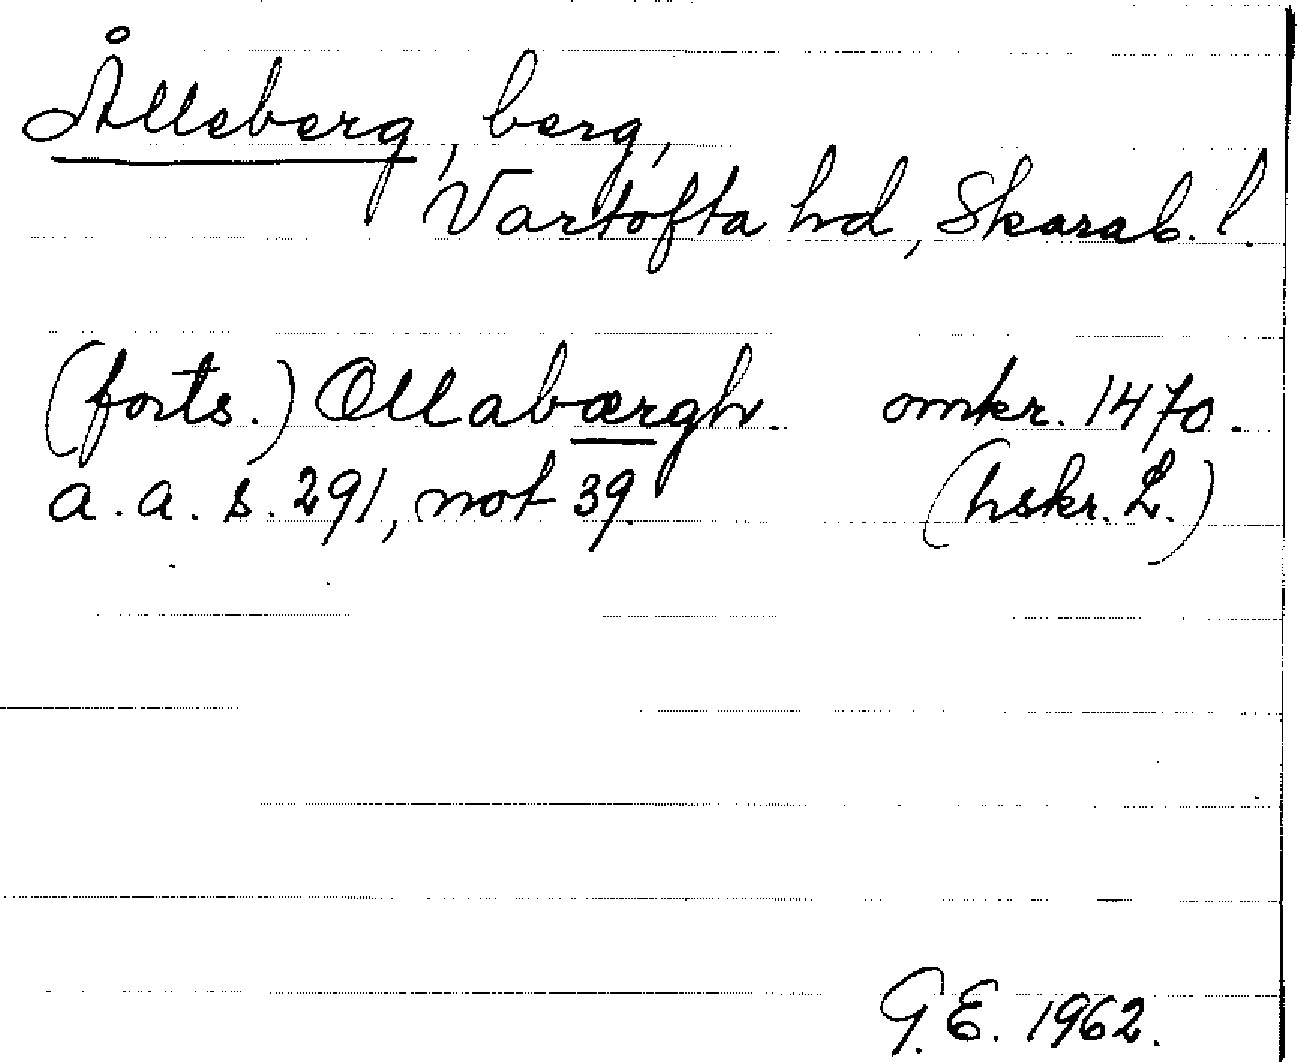 Ålleberg, berg,
Vartofta hd, Skarab. l.
(forts.) Ollabærgh. omkr. 1470.
a. a. s. 291, not 39. (hskr. L.)
G. E. 1962.